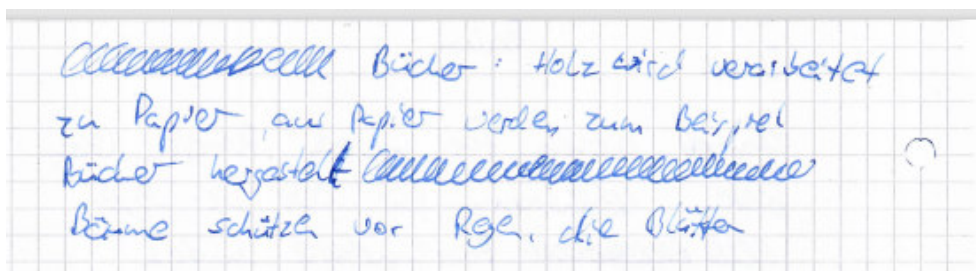 Bücher: Holz wird verarbeitet
zu Papier, aus Papier werden zum Beispiel
Bücher hergestellt
Bäume schützen vor Regen, die Blätter